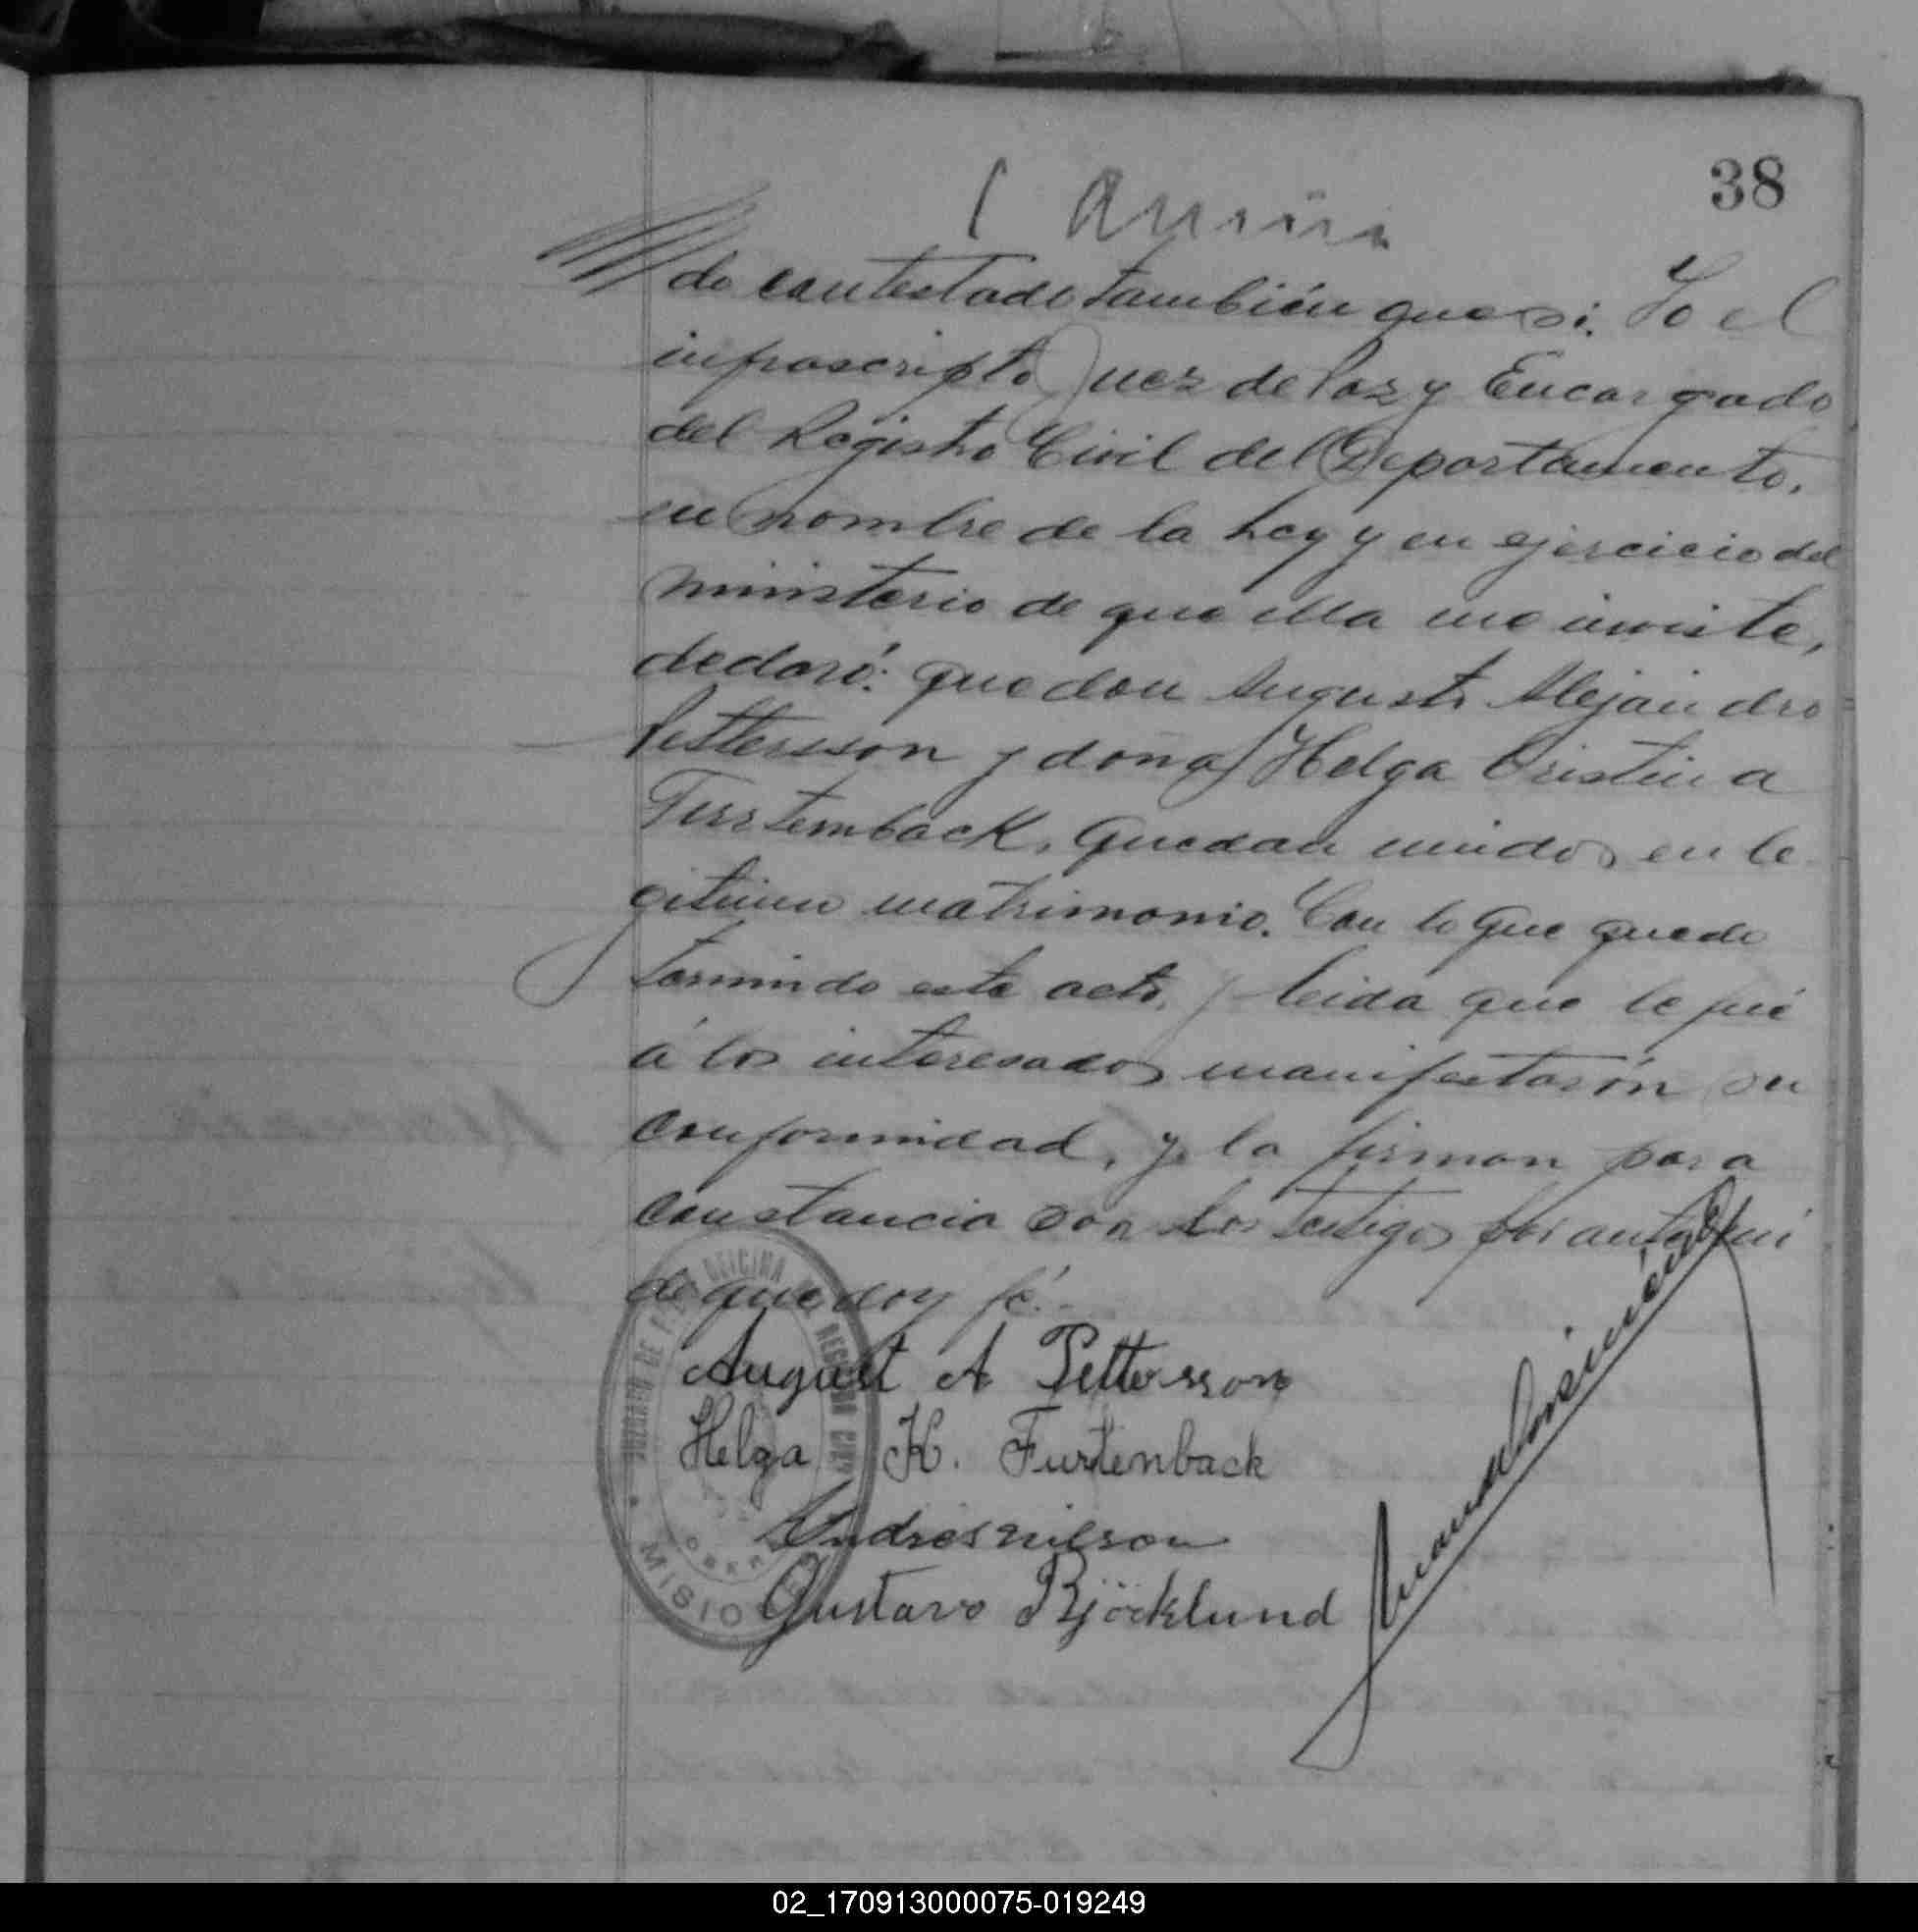 38
do contestado también que si. Yo el
infrascripto Juez de Paz y Encargado
del Registro Civil del Departamento,
en nombre de la Ley y en ejercicio del
ministerio de que ella me inviste,
declaró: que don August Alejandro
Pettersson y dona Helga Cristina
Furstemback, quedan unidos en le
gitimo matrimonio. Con lo que quedo
termindo este acto, y leida que le fué
á los interesados manifestarón su
conformidad, y la firman para
constancia con los testigos por ante mi
de que doy fé.
August A Pettersson
Helga K. Furtenback
Andres nilson
Gustavo Björklund
JUZGADO DE PAZ OFICINA DE REGISTRO CIVIL
OBERA
MISIONES
02_170913000075-019249